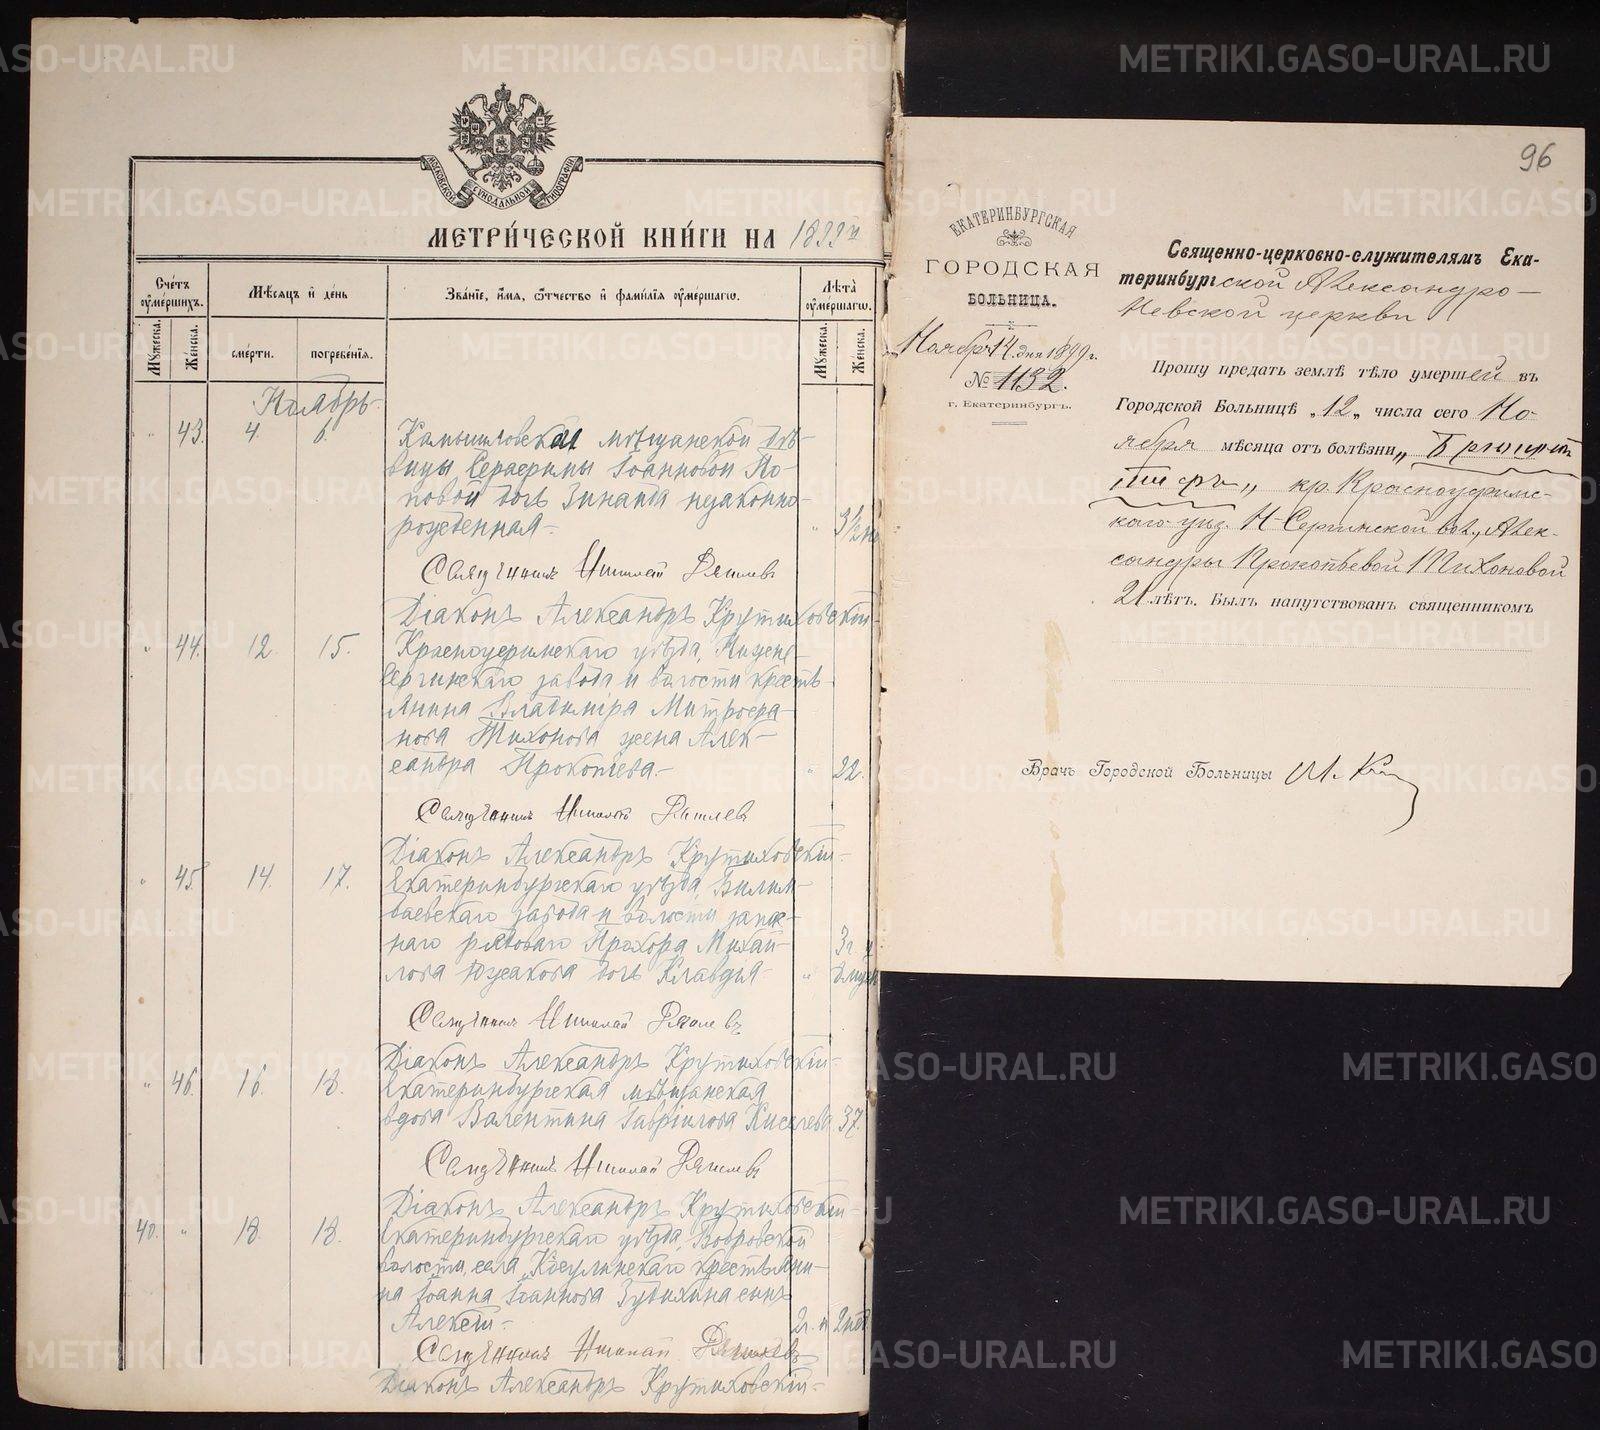 МОСКОВСКОЙ СѴНОДАЛЬНОЙ ТИПОГРАФІИ
МЕТРИ́ЧЕСКОЙ КНИ́ГИ НА 1899й
Сче́тъ оумершихъ.
Мѣсяцъ и́ де́нь
Зва́нїе, и́мѧ, ѻ҆́тчество и҆ фами́лїѧ оу҆ме́ршагѡ.
Лѣ́та оу҆ме́ршагѡ.
Мꙋжеска.
Же́нска.
сме́рти.
погребе́нїя.
Мꙋжеска.
Же́нска.
Ноябрь
„ 43. 4. 6. Камышловской мѣщанской дѣ-
вицы Серафимы Іоанновой По-
повой дочь Зинаида незаконно-
рожденная- „ 3½
Священникъ Николай
Діаконъ Александръ Крутиховскій-
„ 44. 12. 15. Красноуфимскаго уѣзда, Нижне-
Сергинскаго завода и волости кресть-
янина Владиміра Митрофа-
нова Тихонова жена Алек-
сандра Прокопьева.- „ 22.
Священникъ Николай
Діаконъ Александръ Крутиховскій-
„ 45. 14. 17. Екатеринбургскаго уѣзда, Билим-
баевскаго завода и волости запас-
наго рядоваго Прохора Михай- 3г. и
лова Южакова дочь Клавдія- „
Священникъ Николай
Діаконъ Александръ Крутиховскій-
„ 46. 16. 18. Екатеринбургская мѣщанская
вдова Валентина Гавріилова Киселева 37.
Священникъ Николай
Діаконъ Александръ Крутиховскій-
40. „ 18. 18. Екатеринбургскаго уѣзда, Бобровской
волости, села Косулинскаго крестьяни-
на Іоанна Іоаннова Зубихина сынъ
Алексій- 2г. и
Священникъ Николай
Діаконъ Александръ Крутиховскій-
96
ЕКАТЕРИНБУРГСКАЯ
ГОРОДСКАЯ
БОЛЬНИЦА.
„Ноября 14 дня 1899 г.
№ 1132.
г. Екатеринбургъ.
Священно-церковно-служителямъ Ека-
теринбургской Александро-
Невской церкви
Прошу предать землѣ тѣло умершей въ
Городской Больницѣ „12„ числа сего Но-
ября мѣсяца отъ болѣзни „Брюшной
тифъ„ кр. Красноуфимс-
каго уѣз. Н-Сергинской вол., Алек-
сандры Прокопьевой Тихоновой
21 лѣтъ. Былъ напутствованъ священникомъ
Врачъ Городской Больницы
METRIKI.GASO-URAL.RU